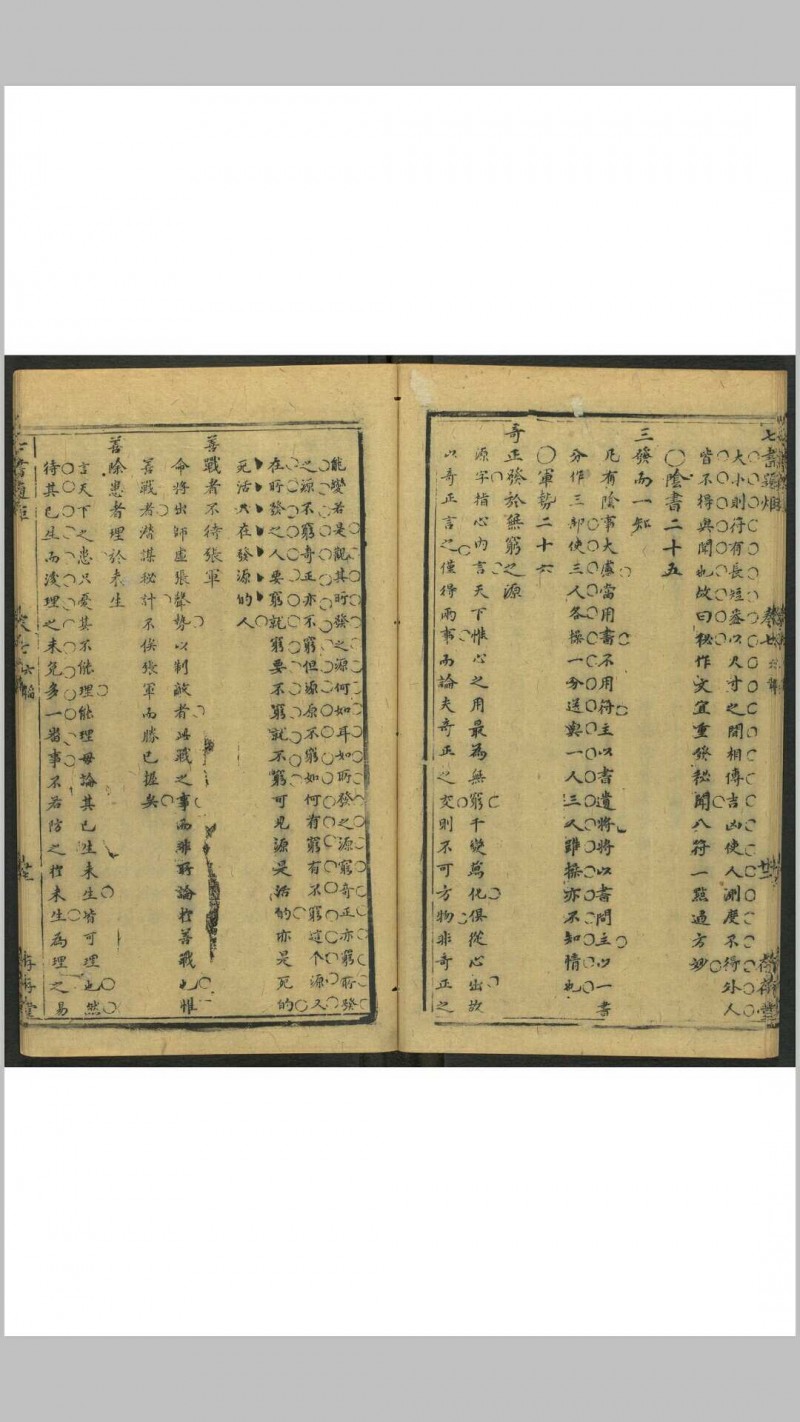 大小則行有長短盈以尺寸之間相傳吉凶使人測度不得外人
皆不得與聞也故曰秘作文宜重發秘聞八符一點通方妙
〇陰書二十五
三發而一知
凡有陰事大慮當用書不用符主以書遺將將以書問主以一書
分作三部使三人各操一分送與一人三人雖操亦不知情也
〇軍勢二十六
奇正發於無窮之源
源字指心內言天下惟心之用最為無窮千變萬化俱從心出故
以奇正言之僅得兩事而論夫奇正之交則不可方物非奇正之
能變若是觀其所發之源何如耳如所發之源窮奇正亦窮所發
之源不窮奇正亦不窮但源原不窮如何有窮有不窮這个源又
在所發之人要窮就窮要不窮就不窮可見源是活的亦是死的
死活只在發源的人
善戰者不待張軍
命將出師虛張聲勢以制敵者此戰之事而非所論於善戰也惟
善戰者潛謀秘計不俟張軍而勝已握矣
善除患者理於未生
言天下之患只憂其不能理能理毋論其已生未生皆可理也然
待其已生而後理之未免多一番事不若防之於未生為理之易